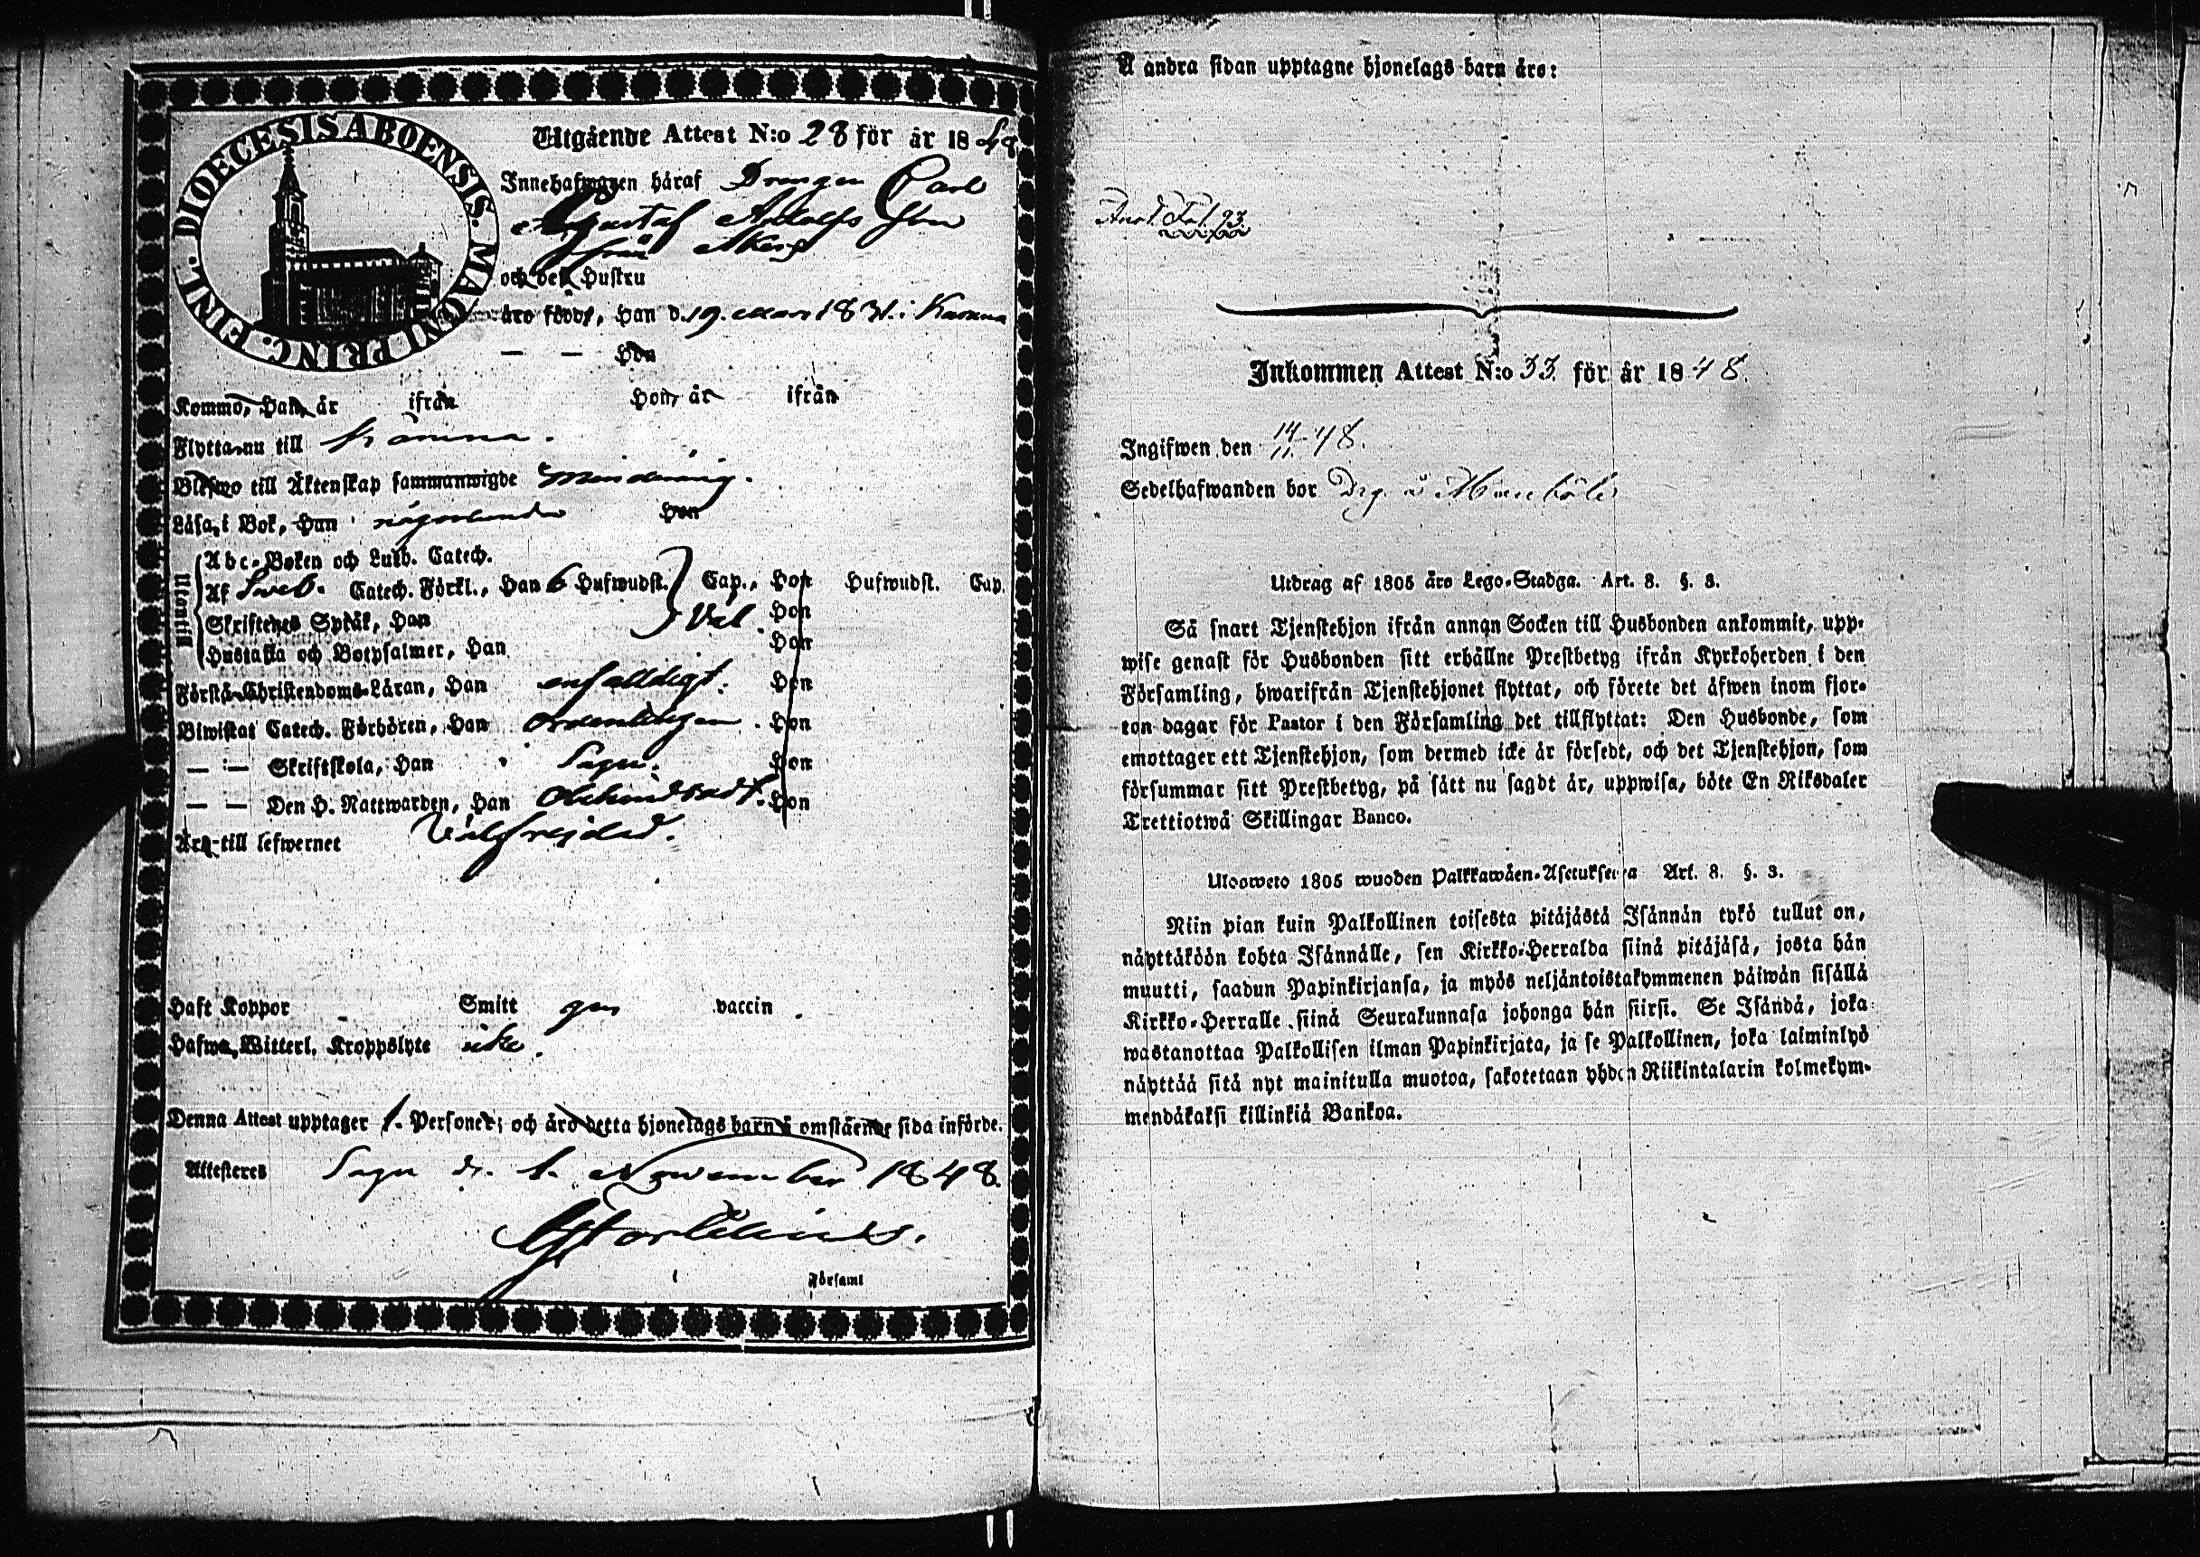 DIOECESIS ABOENSIS. MAGNI PRINC. FINL.
Utgående Attest N:o 28 för år 1848
Innehafwaren håraf Drängen Carl
Gustaf Adolfs Son
från
och deß Hustru
äro födde, Han d. 19. Mars 1831. i Karuna
— — Hon
Kommo, Han, år ifrån Hon, år ifrån
Flytta nu till Kamna.
Blefwo till Äktenskap sammanwigde Minderårig.
Läsa i Bok, Han någorlunda Hon
Utantill
Abc-Boken och Luth. Catech.
Af Sweb. Catech. Förkl., Han 6 Hufwudst. Cap., Hon Hufwudst. Cap.
Skriftenes Språk, Han Väl. Hon
Hustafla och Botpsalmer, Han Hon
Förstå Christendoms-Läran, Han enfaldigt. Hon
Biwistat Catech. Förhören, Han ordentligen. Hon
— — Skriftskola, Han Sagu. Hon
— — Den H. Nattwarden, Han obehindradt. Hon
Äro till lefwernet Välfrejdad.
Haft Koppor Smitt gm vaccin
Hafwa, Witterl. Kroppslyte icke.
Denna Attest upptager 1. Personer; och äro detta hjonelags barn å omstående sida införde.
Attesteres Sagu d. 1. November 1848.
i Församl
Å andra sidan upptagne hjonelags barn äro:
Fol. 93.
Inkommen Attest N:o 33. för år 1848.
Ingifwen den 14/11 48.
Sedelhafwanden bor Drg. å
Utdrag af 1805 åro Lego-Stadga. Art. 8. §. 3.
Så snart Tjenstehjon ifrån annan Socken till Husbonden ankommit, upp-
wise genast för Husbonden sitt erhållne Prestbetyg ifrån Kyrkoherden i den
Församling, hwarifrån Tjenstehjonet flyttat, och förete det äfwen inom fjor-
ton dagar för Pastor i den Församling det tillflyttat: Den Husbonde, som
emottager ett Tjenstehjon, som dermed icke är försedt, och det Tjenstehjon, som
försummar sitt Prestbetyg, på sätt nu sagdt är, uppwisa, böte En Riksdaler
Trettiotwå Skillingar Banco.
Ulosweto 1805 wuoden Palkkawäen-Asetuksesta Art. 8. §. 3.
Niin pian kuin Palkollinen toisesta pitäjästä Isännän tykö tullut on,
näyttäköön kohta Isännälle, sen Kirkko-Herralda siinä pitäjäsä, josta hän
muutti, saadun Papinkirjansa, ja myös neljäntoistakymmenen päiwän sisällä
Kirkko-Herralle siinä Seurakunnasa johonga hän siirsi. Se Isändä, joka
wastanottaa Palkollisen ilman Papinkirjata, ja se Palkollinen, joka laiminlyö
näyttää sitä nyt mainitulla muotoa, sakotetaan yhden Riikintalarin kolmekym-
mendäkaksi killinkiä Bankoa.